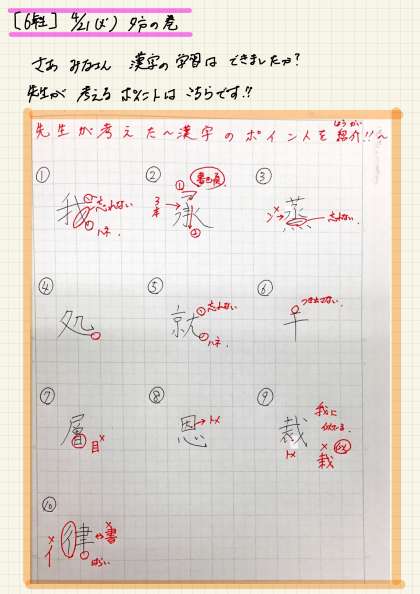 [6年生] 4/21(火) 夕方の巻
さぁ みなさん 漢字の学習は できましたか?
先生が 考える ポイントは こちらです!!
先生が考えた〜漢字のポイントを紹介!!〜
しょうかい
① 我 忘れない ハネ
② 承 書き順 3本 ① ②
③ 蒸 忘れない
④ 処
⑤ 就 忘れない ハネ
⑥ 干 つき出さない
⑦ 層 目
⑧ 恩 トメ
⑨ 裁 我に似てる トメ 栽
⑩ 律 イ 書 はらい